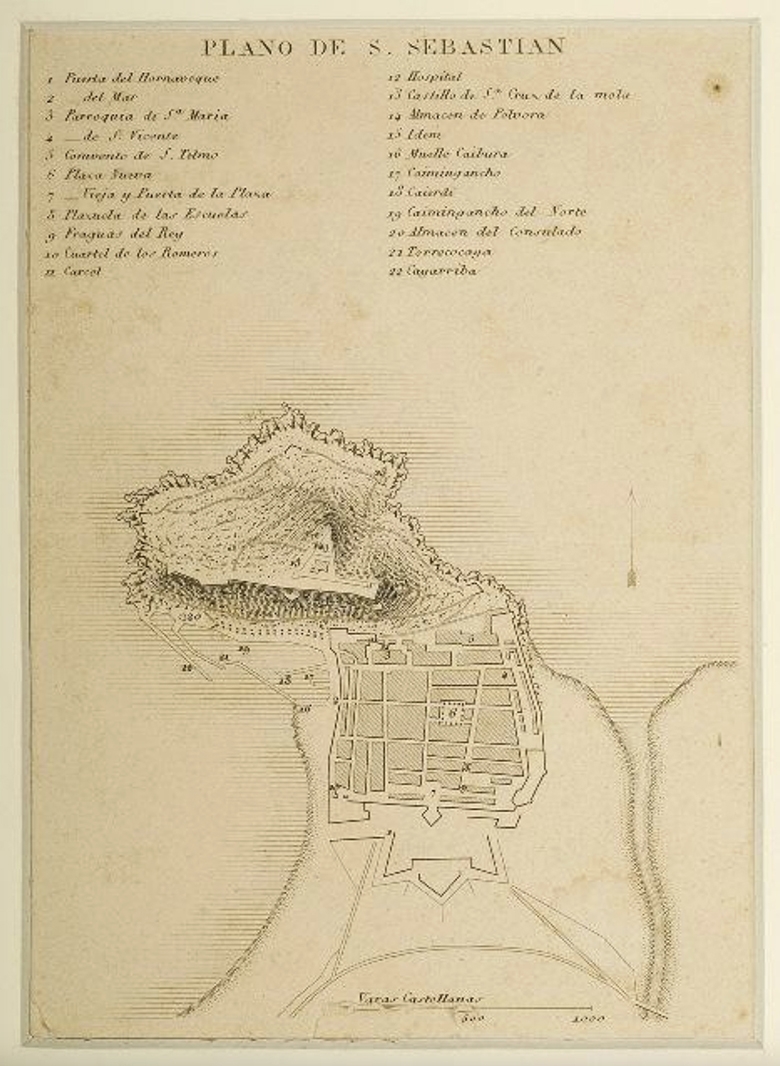 PLANO DE S. SEBASTIAN
1 Puerta del Hornaveque
2 __ del Mar
3 Parroquia de S.ta Maria
4 __ de S. Vicente
5 Convento de S. Telmo
6 Plaza Nueva
7 __ Vieja y Puerta de la Plaza
8 Plazuela de las Escuelas
9 Fraguas del Rey
10 Cuartel de los Romeros
11 Carcel
12 Hospital
13 Castillo de S.ta Cruz de la mota
14 Almacen de Polvora
15 Idem
16 Muelle Caibura
17 Caimingancho
18 Caierdi
19 Caimingancho del Norte
20 Almacen del Consulado
21 Torrecocaya
22 Cayarriba
13
20
5
3
21
19
4
18
17
16
9
6
7
2
Varas Castellanas
500
1000